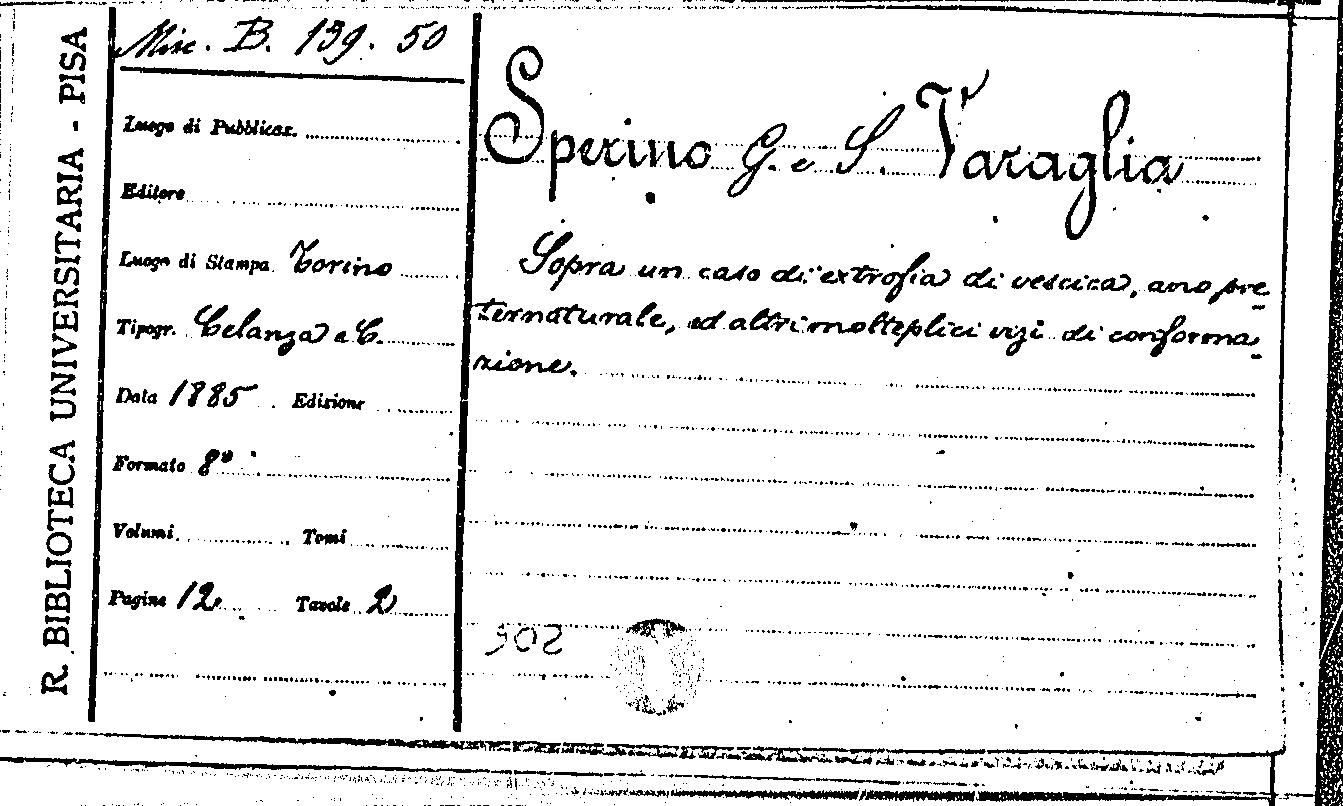 R. BIBLIOTECA UNIVERSITARIA - PISA
Misc. B. 139. 50
Luogo di Pubblicaz.
Editore
Luogo di Stampa Torino
Tipogr. Celanza e C.
Data 1885 Edizione
Formato 8º
Volumi Tomi
Pagine 12 Tavole 2
Sperino G. e S. Varaglia
Sopra un caso di extrofia di vescica, ano pre-
ternaturale, ed altri molteplici vizi di conforma-
zione.